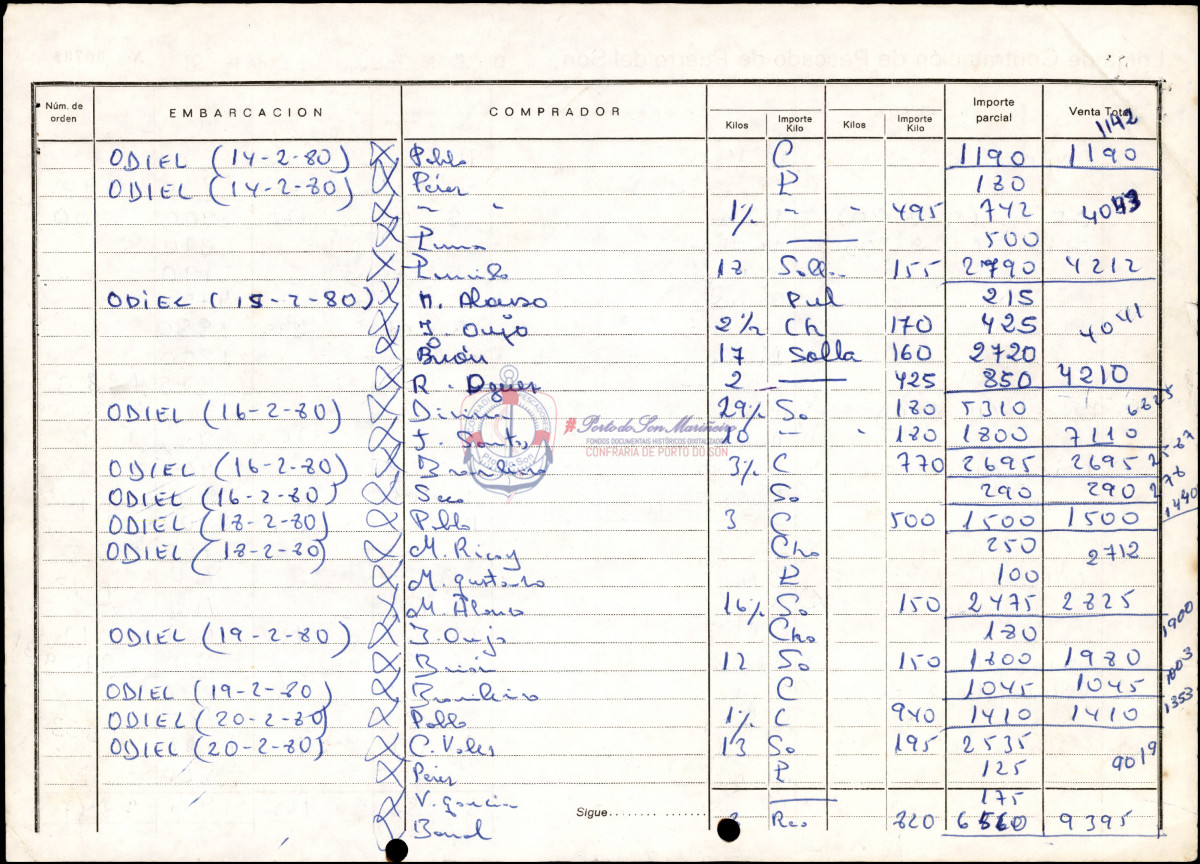 Núm. de orden EMBARCACION COMPRADOR Kilos Importe Kilo Kilos Importe Kilo Importe parcial Venta Total
1142
ODIEL (14-2-80) Pablo C 1190 1190
ODIEL (14-2-80) Pérez P 180
1½ - - 495 742 4043
500
18 155 2790 4212
ODIEL (15-2-80) M. Alonso Pul 215
J. Oujo 2½ Ch 170 425 4041
Brión 17 Solla 160 2720
R. 2 425 850 4210
ODIEL (16-2-80) 29½ So 180 5310 6825
J. Santos 10 - " 180 1800 7110
ODIEL (16-2-80) Brasileiro 3½ C 770 2695 2695 2587
ODIEL (16-2-80) Seco So 290 290 278
ODIEL (18-2-80) Pablo 3 C 500 1500 1500 1440
ODIEL (18-2-80) M. Ricoy Cho 250 2712
M. P 100
M. Alonso 16½ So 150 2475 2825
ODIEL (19-2-80) J. Oujo Cho 180 1900
Brión 12 So 150 1800 1980
ODIEL (19-2-80) Brasileiro C 1045 1045 1003
ODIEL (20-2-80) Pablo 1½ C 940 1410 1410 1353
ODIEL (20-2-80) C. Vales 13 So 195 2535
Pérez P 125 9019
V. García 175
Sigue
820 6560 9395
#Porto do Son Mariñeiro
FONDOS DOCUMENTAIS HISTÓRICOS DIGITALIZADOS
CONFRARÍA DE PORTO DO SON